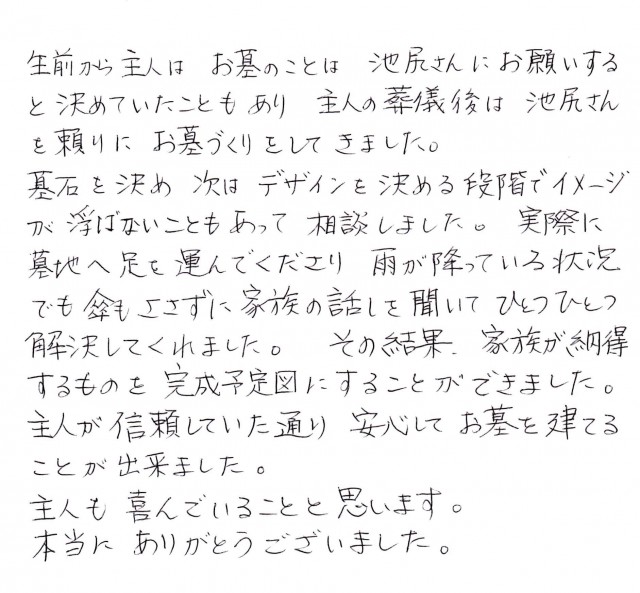 生前から主人は お墓のことは 池尻さんにお願いする
と決めていたこともあり 主人の葬儀後は 池尻さん
を頼りに お墓づくりをしてきました。
墓石を決め 次は デザインを決める段階でイメージ
が浮ばないこともあって 相談しました。 実際に
墓地へ足を運んでくださり 雨が降っている状況
でも傘もささずに家族の話しを聞いて ひとつひとつ
解決してくれました。 その結果、家族が納得
するものを 完成予定図にすることができました。
主人が信頼していた通り 安心して お墓を建てる
ことが出来ました。
主人も 喜んでいることと思います。
本当に ありがとうございました。